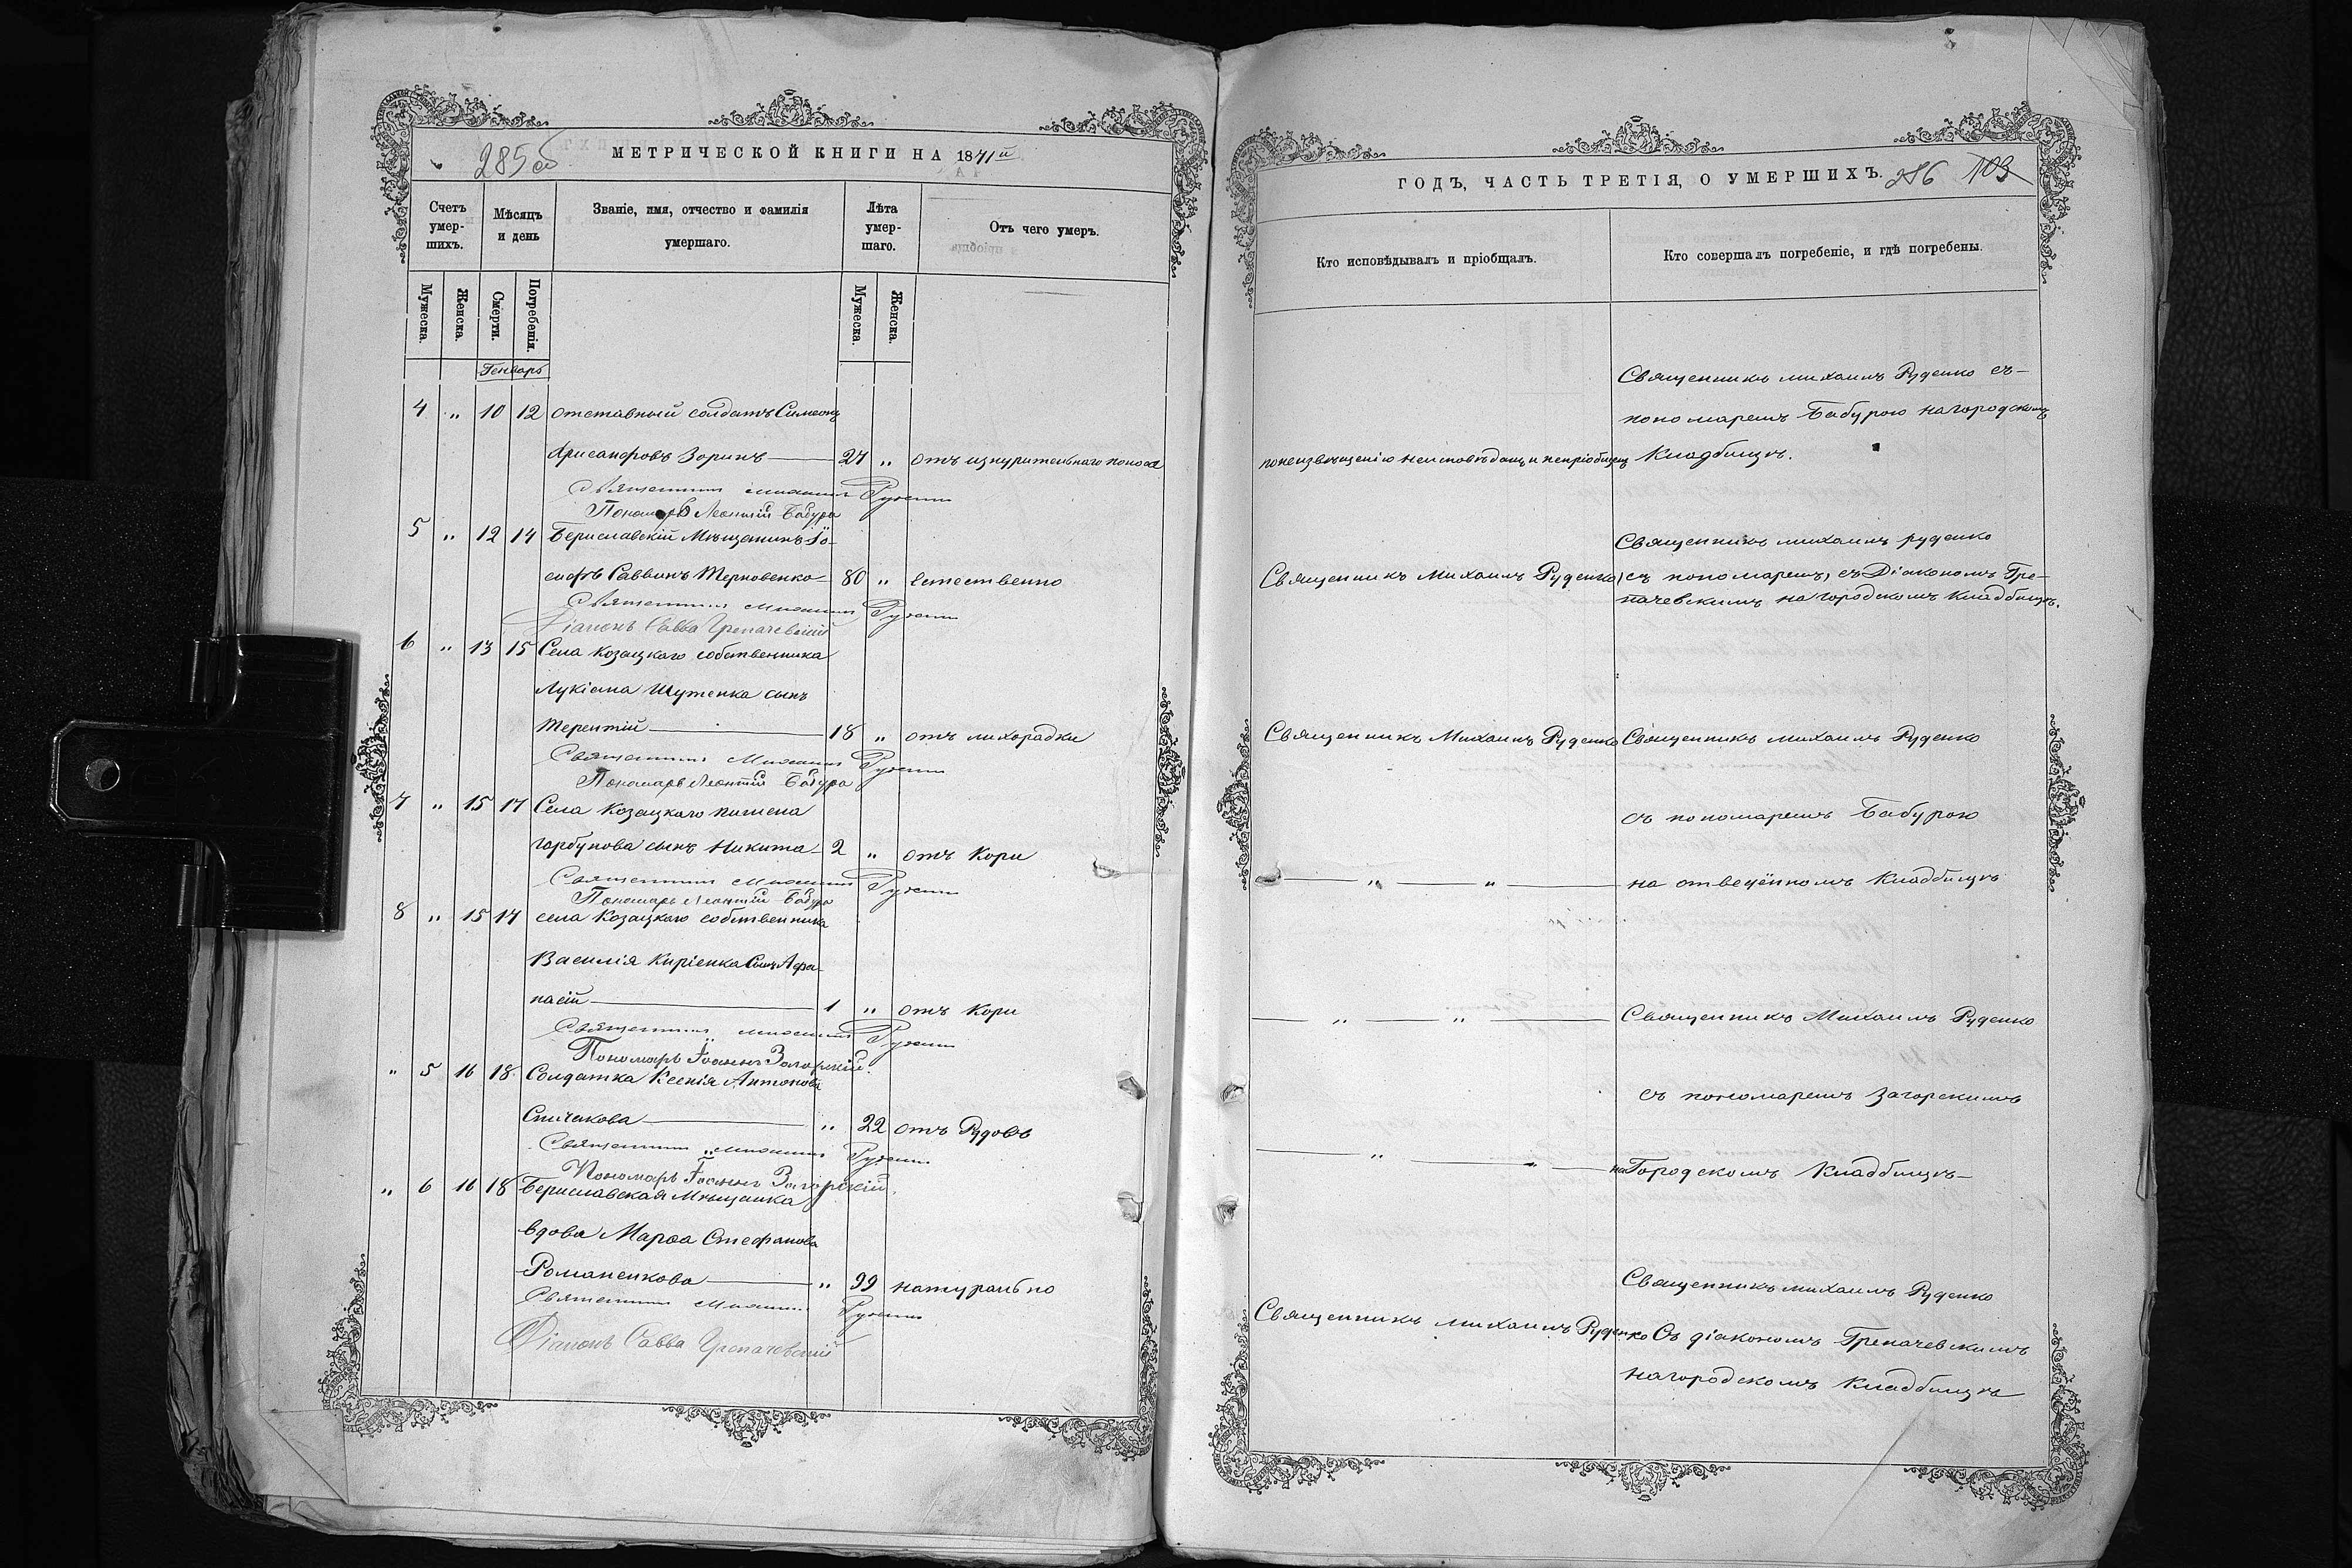 285 об МЕТРИЧЕСКОЙ КНИГИ НА 1871й
Счетъ умер-шихъ.
Мѣсяцъ и день
Званіе, имя, отчество и фамилія умершаго.
Лѣта умер-шаго.
Отъ чего умеръ.
Мужеска.
Женска.
Смерти.
Погребенія.
Мужеска.
Женска.
Генварь
4 „ 10 12 отставный солдатъ Симеонъ
Зоринъ — 27 „ отъ изнурительнаго поноса
Священникъ Михаилъ Руденко
Пономарь Леонтій Бабура
5 „ 12 14 Бериславскій Мѣщанинъ Іо-
сифъ Саввинъ Терновенко — 80 „ Естественно
Священникъ Михаилъ Руденко
Діаконъ Савва Грепачевскій
6 „ 13 15 Села Козацкаго собственника
Лукіана Шутенка сынъ
Терентій — 18 „ отъ лихорадки
Священникъ Михаилъ Руденко
Пономарь Леонтій Бабура
7 „ 15 17 Села Козацкаго пимена
горбунова сынъ Никита — 2 „ отъ Кори
Священникъ Михаилъ Руденко
Пономарь Леонтій Бабура
8 „ 15 17 села Козацкаго собственника
Василія Киріенка Сынъ Афа-
насій — 1 „ отъ Кори
Священникъ Михаилъ Руденко
Пономарь Іоаннъ Загорскій.
„ 5 16 18 Солдатка Ксенія Антонова
Спичакова — „ 22 отъ Рудовъ
Священникъ Михаилъ Руденко
Пономарь Іоаннъ Загорскій.
„ 6 16 18 Бериславская Мѣщанка
вдова Марѳа Стефанова
Романенкова — „ 99 натурально
Священникъ Михаилъ Руденко
Діаконъ Савва Грепачевскій
ГОДЪ, ЧАСТЬ ТРЕТІЯ, О УМЕРШИХЪ. 286 103
Кто исповѣдывалъ и пріобщалъ.
Кто совершалъ погребеніе, и гдѣ погребены.
Священникъ михаилъ Руденко съ-
пономаремъ Бабурою на городскомъ
понеизвѣщенію неисповѣданъ и непріобщенъ Кладбищѣ.
Священникъ михаилъ руденко
Священникъ Михаилъ Руденко, съ пономаремъ, съ Діакономъ Гре-
пачевскимъ на городскомъ Кладбищѣ.
Священникъ Михаилъ Руденко Священникъ михаилъ Руденко
съ пономаремъ Бабурою
— „ — „ — на отведённомъ Кладбищѣ
— „ — „ — Священникъ Михаилъ Руденко
съ пономаремъ Загорскимъ
— „ — „ — на Городскомъ Кладбищѣ-
Священникъ михаилъ Руденко
Священникъ михаилъ Руденко Съ діакономъ Грепачевскимъ
на городскомъ Кладбищѣ